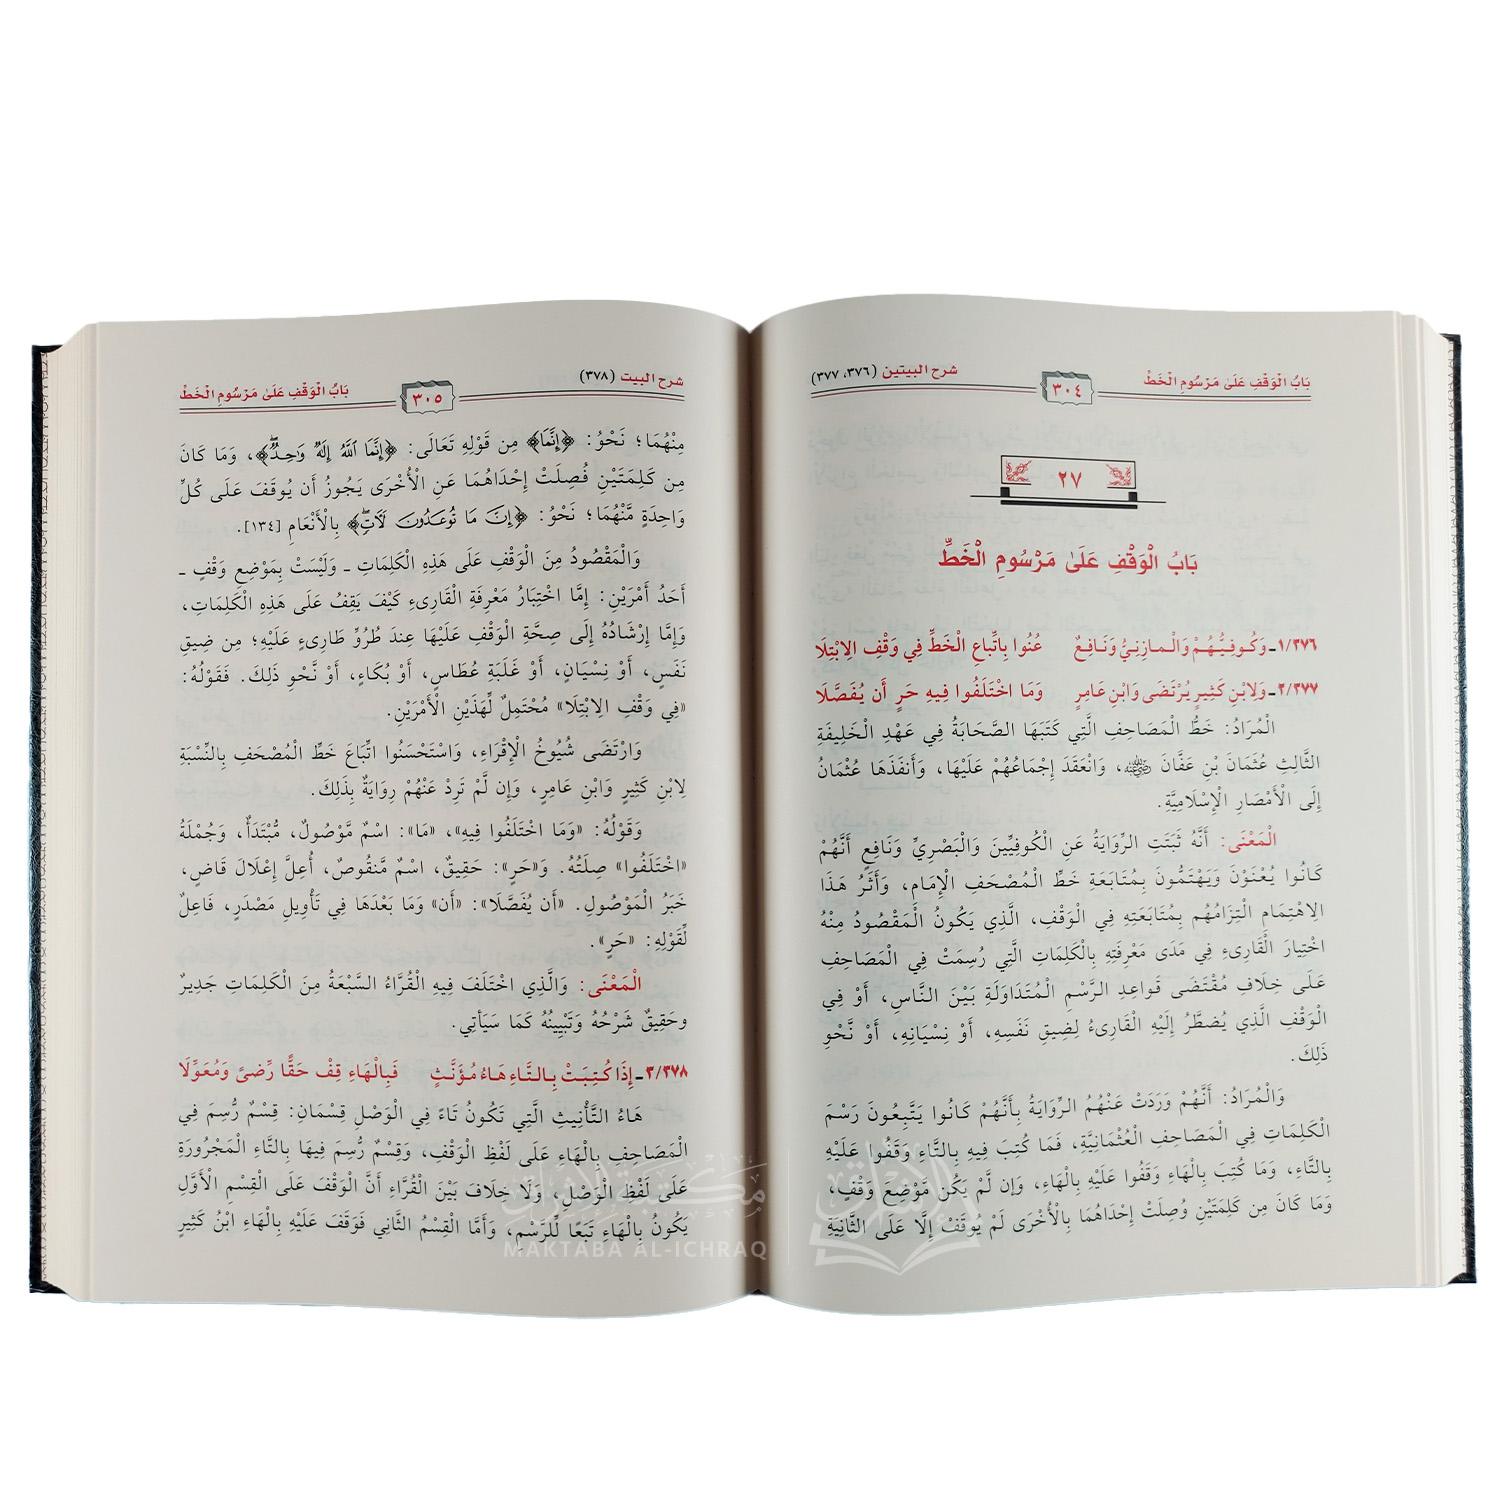 بَابُ الْوَقْفِ عَلَىٰ مَرْسُومِ الْخَطِّ
٣٠٤
شرح البيتين (٣٧٦، ٣٧٧)
٢٧
بَابُ الْوَقْفِ عَلَىٰ مَرْسُومِ الْخَطِّ
١/٣٧٦ ـ وَكُوفِيُّهُمْ وَالْمَازِنِيُّ وَنَافِعٌ عُنُوا بِاتِّبَاعِ الْخَطِّ فِي وَقْفِ الِابْتِلَا
٢/٣٧٧ ـ وَلِابْنِ كَثِيرٍ يُرْتَضَى وَابْنِ عَامِرٍ وَمَا اخْتَلَفُوا فِيهِ حَرٍ أَن يُفَصَّلَا
الْمُرَادُ: خَطُّ الْمَصَاحِفِ الَّتِي كَتَبَهَا الصَّحَابَةُ فِي عَهْدِ الْخَلِيفَةِ
الثَّالِثِ عُثْمَانَ بْنِ عَفَّانَ رضي الله عنه، وَانْعَقَدَ إِجْمَاعُهُمْ عَلَيْهَا، وَأَنفَذَهَا عُثْمَانُ
إِلَى الْأَمْصَارِ الْإِسْلَامِيَّةِ.
الْمَعْنَى: أَنَّهُ ثَبَتَتِ الرِّوَايَةُ عَنِ الْكُوفِيِّينَ وَالْبَصْرِيِّ وَنَافِعٍ أَنَّهُمْ
كَانُوا يُعْنَوْنَ وَيَهْتَمُّونَ بِمُتَابَعَةِ خَطِّ الْمُصْحَفِ الْإِمَامِ، وَأَثَرُ هَذَا
الِاهْتِمَامِ الْتِزَامُهُم بِمُتَابَعَتِهِ فِي الْوَقْفِ، الَّذِي يَكُونُ الْمَقْصُودُ مِنْهُ
اخْتِيَارَ الْقَارِئِ فِي مَدَى مَعْرِفَتِهِ بِالْكَلِمَاتِ الَّتِي رُسِمَتْ فِي الْمَصَاحِفِ
عَلَى خِلَافِ مُقْتَضَى قَوَاعِدِ الرَّسْمِ الْمُتَدَاوَلَةِ بَيْنَ النَّاسِ، أَوْ فِي
الْوَقْفِ الَّذِي يُضْطَرُّ إِلَيْهِ الْقَارِئُ لِضِيقِ نَفَسِهِ، أَوْ نِسْيَانِهِ، أَوْ نَحْوِ
ذَلِكَ.
وَالْمُرَادُ: أَنَّهُمْ وَرَدَتْ عَنْهُمُ الرِّوَايَةُ بِأَنَّهُمْ كَانُوا يَتَّبِعُونَ رَسْمَ
الْكَلِمَاتِ فِي الْمَصَاحِفِ الْعُثْمَانِيَّةِ، فَمَا كُتِبَ فِيهِ بِالتَّاءِ وَقَفُوا عَلَيْهِ
بِالتَّاءِ، وَمَا كُتِبَ بِالْهَاءِ وَقَفُوا عَلَيْهِ بِالْهَاءِ، وَإِن لَّمْ يَكُن مَّوْضِعَ وَقْفٍ،
وَمَا كَانَ مِن كَلِمَتَيْنِ وُصِلَتْ إِحْدَاهُمَا بِالْأُخْرَى لَمْ يُوقَفْ إِلَّا عَلَى الثَّانِيَةِ
شرح البيت (٣٧٨)
٣٠٥
بَابُ الْوَقْفِ عَلَىٰ مَرْسُومِ الْخَطِّ
مِنْهُمَا؛ نَحْوُ: ﴿إِنَّمَا﴾ مِن قَوْلِهِ تَعَالَى: ﴿إِنَّمَا ٱللَّهُ إِلَٰهٌ وَٰحِدٌ﴾، وَمَا كَانَ
مِن كَلِمَتَيْنِ فُصِلَتْ إِحْدَاهُمَا عَنِ الْأُخْرَى يَجُوزُ أَن يُوقَفَ عَلَى كُلِّ
وَاحِدَةٍ مِّنْهُمَا؛ نَحْوُ: ﴿إِنَّ مَا تُوعَدُونَ لَأٓتٖ﴾ بِالْأَنْعَامِ [١٣٤].
وَالْمَقْصُودُ مِنَ الْوَقْفِ عَلَى هَذِهِ الْكَلِمَاتِ ـ وَلَيْسَتْ بِمَوْضِعِ وَقْفٍ ـ
أَحَدُ أَمْرَيْنِ: إِمَّا اخْتِبَارُ مَعْرِفَةِ الْقَارِئِ كَيْفَ يَقِفُ عَلَى هَذِهِ الْكَلِمَاتِ،
وَإِمَّا إِرْشَادُهُ إِلَى صِحَّةِ الْوَقْفِ عَلَيْهَا عِندَ طُرُوِّ طَارِئٍ عَلَيْهِ؛ مِن ضِيقِ
نَفَسٍ، أَوْ نِسْيَانٍ، أَوْ غَلَبَةِ عُطَاسٍ، أَوْ بُكَاءٍ، أَوْ نَّحْوِ ذَلِكَ. فَقَوْلُهُ:
«فِي وَقْفِ الِابْتِلَا» مُحْتَمِلٌ لِّهَذَيْنِ الْأَمْرَيْنِ.
وَارْتَضَى شُيُوخُ الْإِقْرَاءِ، وَاسْتَحْسَنُوا اتِّبَاعَ خَطِّ الْمُصْحَفِ بِالنِّسْبَةِ
لِابْنِ كَثِيرٍ وَابْنِ عَامِرٍ، وَإِن لَّمْ تَرِدْ عَنْهُمْ رِوَايَةٌ بِذَلِكَ.
وَقَوْلُهُ: «وَمَا اخْتَلَفُوا فِيهِ»، «مَا»: اسْمٌ مَّوْصُولٌ، مُبْتَدَأٌ، وَجُمْلَةُ
«اخْتَلَفُوا» صِلَتُهُ. وَ«حَرٍ»: حَقِيقٌ، اسْمٌ مَّنقُوصٌ، أُعِلَّ إِعْلَالَ قَاضٍ،
خَبَرُ الْمَوْصُولِ. «أَن يُفَصَّلَا»: «أَن» وَمَا بَعْدَهَا فِي تَأْوِيلِ مَصْدَرٍ، فَاعِلٌ
لِّقَوْلِهِ: «حَرٍ».
الْمَعْنَى: وَالَّذِي اخْتَلَفَ فِيهِ الْقُرَّاءُ السَّبْعَةُ مِنَ الْكَلِمَاتِ جَدِيرٌ
وحَقِيقٌ شَرْحُهُ وَتَبْيِينُهُ كَمَا سَيَأْتِي.
٣/٣٧٨ ـ إِذَا كُتِبَتْ بِالتَّاءِ هَاءُ مُؤَنَّثٍ فَبِالْهَاءِ قِفْ حَقًّا رِّضىً وَمُعَوِّلَا
هَاءُ التَّأْنِيثِ الَّتِي تَكُونُ تَاءً فِي الْوَصْلِ قِسْمَانِ: قِسْمٌ رُسِمَ فِي
الْمَصَاحِفِ بِالْهَاءِ عَلَى لَفْظِ الْوَقْفِ، وَقِسْمٌ رُسِمَ فِيهَا بِالتَّاءِ الْمَجْرُورَةِ
عَلَى لَفْظِ الْوَصْلِ، وَلَا خِلَافَ بَيْنَ الْقُرَّاءِ أَنَّ الْوَقْفَ عَلَى الْقِسْمِ الْأَوَّلِ
يَكُونُ بِالْهَاءِ تَبَعًا لِّلرَّسْمِ، وَأَمَّا الْقِسْمُ الثَّانِي فَوَقَفَ عَلَيْهِ بِالْهَاءِ ابْنُ كَثِيرٍ
مكتبة الإشراق
MAKTABA AL-ICHRAQ